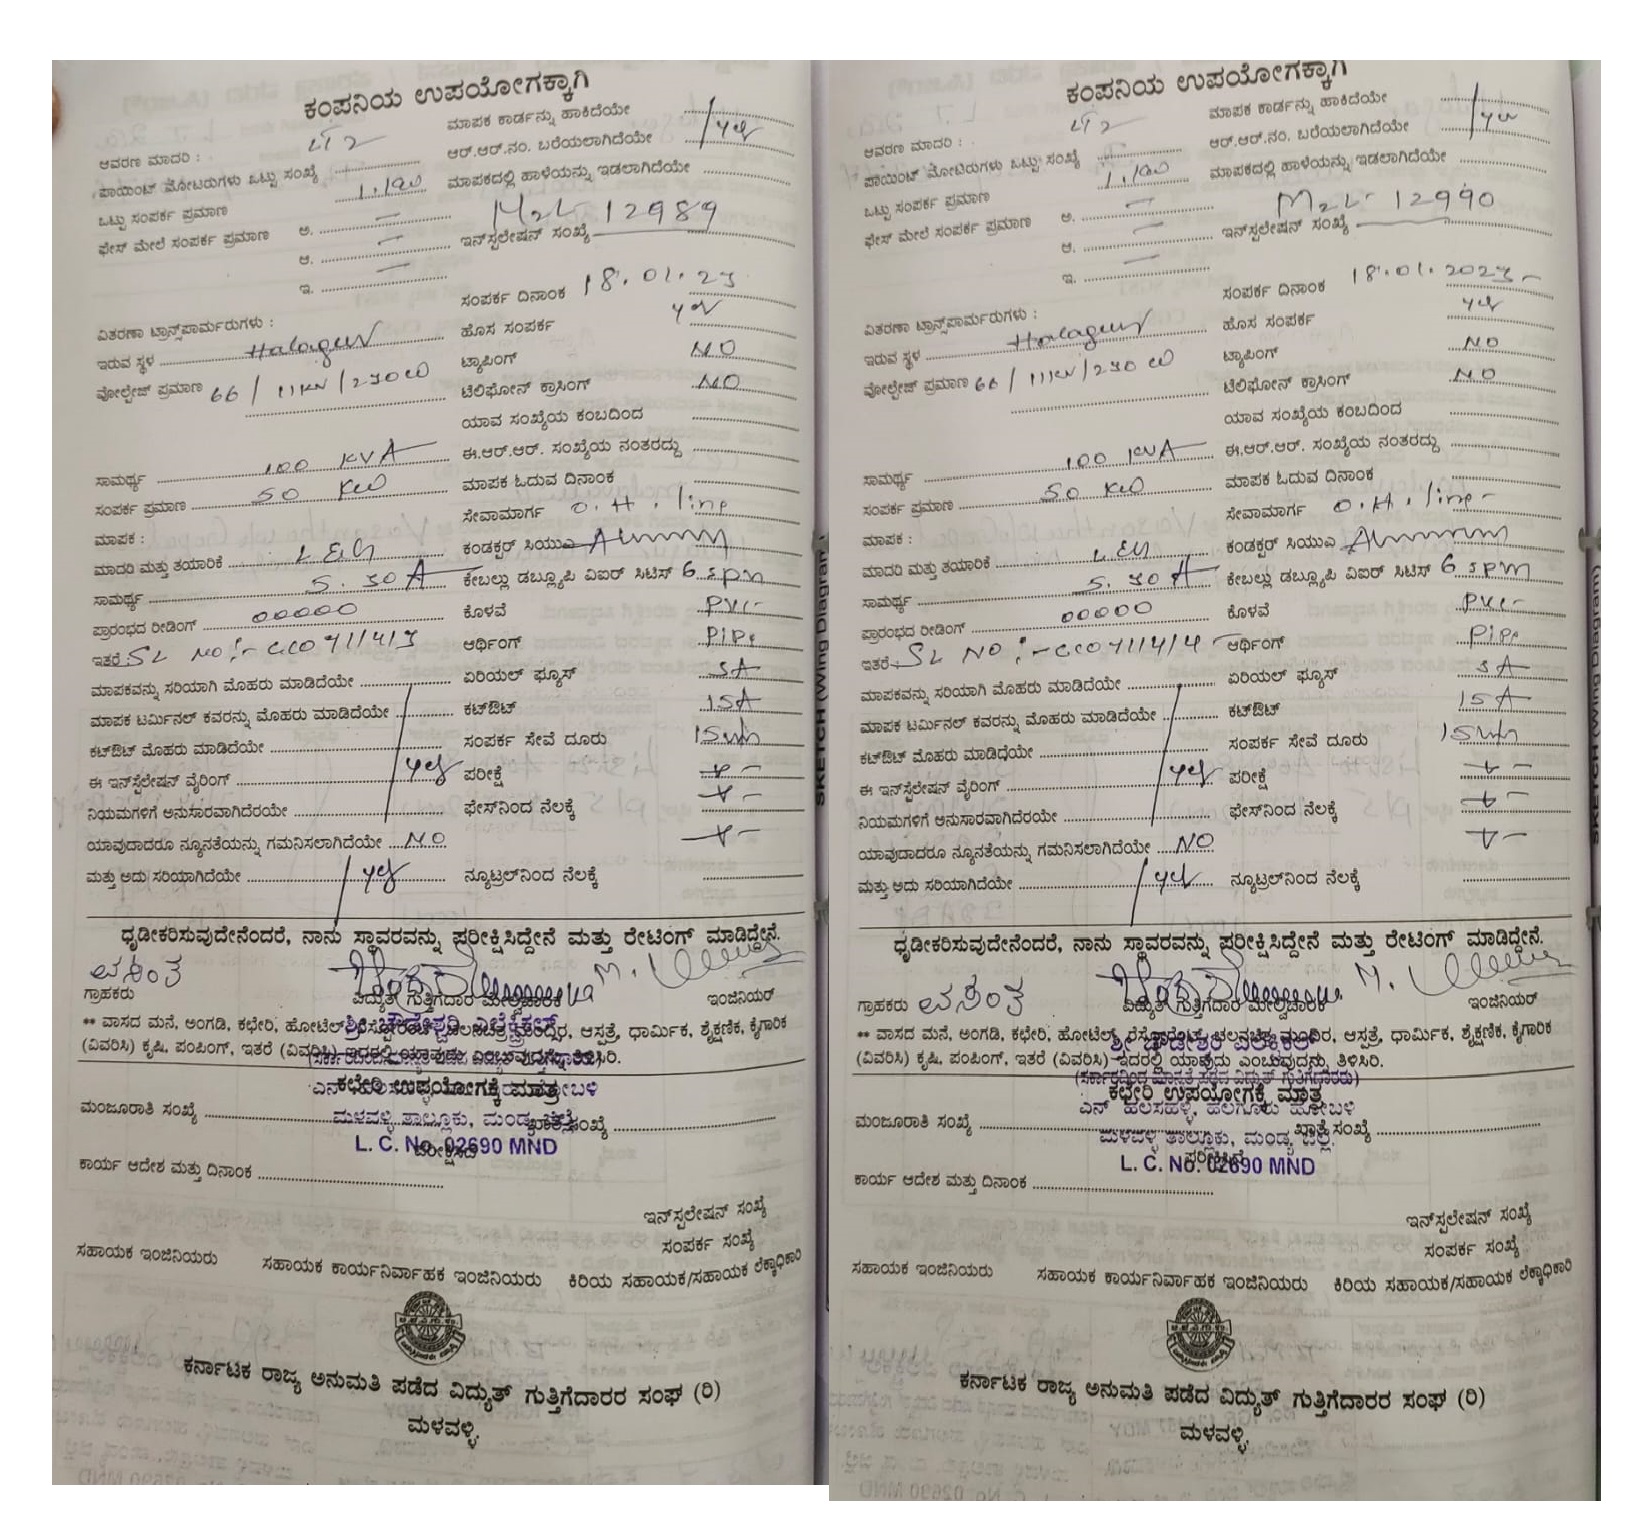 ಕಂಪನಿಯ ಉಪಯೋಗಕ್ಕಾಗಿ
ಆವರಣ ಮಾದರಿ : LT 2
ಪಾಯಿಂಟ್ ಮೋಟರುಗಳು ಒಟ್ಟು ಸಂಖ್ಯೆ
ಒಟ್ಟು ಸಂಪರ್ಕ ಪ್ರಮಾಣ
ಫೇಸ್ ಮೇಲೆ ಸಂಪರ್ಕ ಪ್ರಮಾಣ ಅ. –
ಆ. –
ಇ. –
ಮಾಪಕ ಕಾರ್ಡನ್ನು ಹಾಕಿದೆಯೇ
ಆರ್.ಆರ್.ನಂ. ಬರೆಯಲಾಗಿದೆಯೇ yes
ಮಾಪಕದಲ್ಲಿ ಹಾಳೆಯನ್ನು ಇಡಲಾಗಿದೆಯೇ
ಇನ್‌ಸ್ಟಲೇಷನ್ ಸಂಖ್ಯೆ M2L 12989
ಸಂಪರ್ಕ ದಿನಾಂಕ 18.01.23
ವಿತರಣಾ ಟ್ರಾನ್ಸ್‌ಫಾರ್ಮರುಗಳು :
ಇರುವ ಸ್ಥಳ Halagur
ವೋಲ್ಟೇಜ್ ಪ್ರಮಾಣ 66 / 11KV /
ಹೊಸ ಸಂಪರ್ಕ yes
ಟ್ಯಾಪಿಂಗ್ NO
ಟೆಲಿಫೋನ್ ಕ್ರಾಸಿಂಗ್ NO
ಯಾವ ಸಂಖ್ಯೆಯ ಕಂಬದಿಂದ
ಸಾಮರ್ಥ್ಯ 100 KVA
ಈ.ಆರ್.ಆರ್. ಸಂಖ್ಯೆಯ ನಂತರದ್ದು
ಸಂಪರ್ಕ ಪ್ರಮಾಣ 50 KW
ಮಾಪಕ ಓದುವ ದಿನಾಂಕ
ಮಾಪಕ :
ಸೇವಾಮಾರ್ಗ O.H. line
ಮಾದರಿ ಮತ್ತು ತಯಾರಿಕೆ L&G
ಕಂಡಕ್ಟರ್ ಸಿಯುಎ
ಸಾಮರ್ಥ್ಯ 5.30A
ಕೇಬಲ್ಲು ಡಬ್ಲ್ಯೂಪಿ ವಿಐರ್ ಸಿಟಿಸ್ 6
ಪ್ರಾರಂಭದ ರೀಡಿಂಗ್ 00000
ಕೊಳವೆ PVC
ಇತರೆ SL NO :-
ಆರ್ಥಿಂಗ್ PIPe
ಮಾಪಕವನ್ನು ಸರಿಯಾಗಿ ಮೊಹರು ಮಾಡಿದೆಯೇ
ಏರಿಯಲ್ ಫ್ಯೂಸ್ 5A
ಮಾಪಕ ಟರ್ಮಿನಲ್ ಕವರನ್ನು ಮೊಹರು ಮಾಡಿದೆಯೇ
ಕಟ್‌ಔಟ್ 15A
ಕಟ್‌ಔಟ್ ಮೊಹರು ಮಾಡಿದೆಯೇ
ಸಂಪರ್ಕ ಸೇವೆ ದೂರು
ಈ ಇನ್‌ಸ್ಟಲೇಷನ್ ವೈರಿಂಗ್ yes
ಪರೀಕ್ಷೆ
ನಿಯಮಗಳಿಗೆ ಅನುಸಾರವಾಗಿದೆರಯೇ
ಫೇಸ್‌ನಿಂದ ನೆಲಕ್ಕೆ
ಯಾವುದಾದರೂ ನ್ಯೂನತೆಯನ್ನು ಗಮನಿಸಲಾಗಿದೆಯೇ NO
ಮತ್ತು ಅದು ಸರಿಯಾಗಿದೆಯೇ yes
ನ್ಯೂಟ್ರಲ್‌ನಿಂದ ನೆಲಕ್ಕೆ
ಧೃಡೀಕರಿಸುವುದೇನೆಂದರೆ, ನಾನು ಸ್ಥಾವರವನ್ನು ಪರೀಕ್ಷಿಸಿದ್ದೇನೆ ಮತ್ತು ರೇಟಿಂಗ್ ಮಾಡಿದ್ದೇನೆ.
ವಸಂತ
ಗ್ರಾಹಕರು ವಿದ್ಯುತ್ ಗುತ್ತಿಗೆದಾರ ಮೇಲ್ವಿಚಾರಕ ಇಂಜಿನಿಯರ್
** ವಾಸದ ಮನೆ, ಅಂಗಡಿ, ಕಛೇರಿ, ಹೋಟೆಲ್, ರೆಸ್ಟೋರೆಂಟ್, ಚಲನಚಿತ್ರ ಮಂದಿರ, ಆಸ್ಪತ್ರೆ, ಧಾರ್ಮಿಕ, ಶೈಕ್ಷಣಿಕ, ಕೈಗಾರಿಕ
(ವಿವರಿಸಿ) ಕೃಷಿ, ಪಂಪಿಂಗ್, ಇತರೆ (ವಿವರಿಸಿ) ಇದರಲ್ಲಿ ಯಾವುದು ಎಂಬುವುದನ್ನು ತಿಳಿಸಿರಿ.
ಕಛೇರಿ ಉಪಯೋಗಕ್ಕೆ ಮಾತ್ರ
ಮಂಜೂರಾತಿ ಸಂಖ್ಯೆ ಖಾತೆ ಸಂಖ್ಯೆ
ಮಳವಳ್ಳಿ ತಾಲ್ಲೂಕು, ಮಂಡ್ಯ ಜಿಲ್ಲೆ.
L. C. No. 02690 MND
ಕಾರ್ಯ ಆದೇಶ ಮತ್ತು ದಿನಾಂಕ
ಇನ್‌ಸ್ಟಲೇಷನ್ ಸಂಖ್ಯೆ
ಸಂಪರ್ಕ ಸಂಖ್ಯೆ
ಸಹಾಯಕ ಇಂಜಿನಿಯರು ಸಹಾಯಕ ಕಾರ್ಯನಿರ್ವಾಹಕ ಇಂಜಿನಿಯರು ಕಿರಿಯ ಸಹಾಯಕ/ಸಹಾಯಕ ಲೆಕ್ಕಾಧಿಕಾರಿ
ಕರ್ನಾಟಕ ರಾಜ್ಯ ಅನುಮತಿ ಪಡೆದ ವಿದ್ಯುತ್ ಗುತ್ತಿಗೆದಾರರ ಸಂಘ (ರಿ)
ಮಳವಳ್ಳಿ.
SKETCH (Wing Diagram)
ಕಂಪನಿಯ ಉಪಯೋಗಕ್ಕಾಗಿ
ಆವರಣ ಮಾದರಿ : LT 2
ಪಾಯಿಂಟ್ ಮೋಟರುಗಳು ಒಟ್ಟು ಸಂಖ್ಯೆ
ಒಟ್ಟು ಸಂಪರ್ಕ ಪ್ರಮಾಣ
ಫೇಸ್ ಮೇಲೆ ಸಂಪರ್ಕ ಪ್ರಮಾಣ ಅ. –
ಆ. –
ಇ. –
ಮಾಪಕ ಕಾರ್ಡನ್ನು ಹಾಕಿದೆಯೇ
ಆರ್.ಆರ್.ನಂ. ಬರೆಯಲಾಗಿದೆಯೇ yes
ಮಾಪಕದಲ್ಲಿ ಹಾಳೆಯನ್ನು ಇಡಲಾಗಿದೆಯೇ
ಇನ್‌ಸ್ಟಲೇಷನ್ ಸಂಖ್ಯೆ M2L 12990
ಸಂಪರ್ಕ ದಿನಾಂಕ 18.01.2023
ವಿತರಣಾ ಟ್ರಾನ್ಸ್‌ಫಾರ್ಮರುಗಳು :
ಇರುವ ಸ್ಥಳ Halagur
ವೋಲ್ಟೇಜ್ ಪ್ರಮಾಣ 66 / 11KV /
ಹೊಸ ಸಂಪರ್ಕ yes
ಟ್ಯಾಪಿಂಗ್ NO
ಟೆಲಿಫೋನ್ ಕ್ರಾಸಿಂಗ್ NO
ಯಾವ ಸಂಖ್ಯೆಯ ಕಂಬದಿಂದ
ಸಾಮರ್ಥ್ಯ 100 KVA
ಈ.ಆರ್.ಆರ್. ಸಂಖ್ಯೆಯ ನಂತರದ್ದು
ಸಂಪರ್ಕ ಪ್ರಮಾಣ 50 KW
ಮಾಪಕ ಓದುವ ದಿನಾಂಕ
ಮಾಪಕ :
ಸೇವಾಮಾರ್ಗ O.H. line
ಮಾದರಿ ಮತ್ತು ತಯಾರಿಕೆ L&G
ಕಂಡಕ್ಟರ್ ಸಿಯುಎ
ಸಾಮರ್ಥ್ಯ 5.30A
ಕೇಬಲ್ಲು ಡಬ್ಲ್ಯೂಪಿ ವಿಐರ್ ಸಿಟಿಸ್ 6
ಪ್ರಾರಂಭದ ರೀಡಿಂಗ್ 00000
ಕೊಳವೆ PVC
ಇತರೆ SL NO :-
ಆರ್ಥಿಂಗ್ PIPe
ಮಾಪಕವನ್ನು ಸರಿಯಾಗಿ ಮೊಹರು ಮಾಡಿದೆಯೇ
ಏರಿಯಲ್ ಫ್ಯೂಸ್ 5A
ಮಾಪಕ ಟರ್ಮಿನಲ್ ಕವರನ್ನು ಮೊಹರು ಮಾಡಿದೆಯೇ
ಕಟ್‌ಔಟ್ 15A
ಕಟ್‌ಔಟ್ ಮೊಹರು ಮಾಡಿದೆಯೇ
ಸಂಪರ್ಕ ಸೇವೆ ದೂರು
ಈ ಇನ್‌ಸ್ಟಲೇಷನ್ ವೈರಿಂಗ್ yes
ಪರೀಕ್ಷೆ
ನಿಯಮಗಳಿಗೆ ಅನುಸಾರವಾಗಿದೆರಯೇ
ಫೇಸ್‌ನಿಂದ ನೆಲಕ್ಕೆ
ಯಾವುದಾದರೂ ನ್ಯೂನತೆಯನ್ನು ಗಮನಿಸಲಾಗಿದೆಯೇ NO
ಮತ್ತು ಅದು ಸರಿಯಾಗಿದೆಯೇ yes
ನ್ಯೂಟ್ರಲ್‌ನಿಂದ ನೆಲಕ್ಕೆ
ಧೃಡೀಕರಿಸುವುದೇನೆಂದರೆ, ನಾನು ಸ್ಥಾವರವನ್ನು ಪರೀಕ್ಷಿಸಿದ್ದೇನೆ ಮತ್ತು ರೇಟಿಂಗ್ ಮಾಡಿದ್ದೇನೆ.
ಗ್ರಾಹಕರು ವಸಂತ ವಿದ್ಯುತ್ ಗುತ್ತಿಗೆದಾರ ಮೇಲ್ವಿಚಾರಕ ಇಂಜಿನಿಯರ್
** ವಾಸದ ಮನೆ, ಅಂಗಡಿ, ಕಛೇರಿ, ಹೋಟೆಲ್, ರೆಸ್ಟೋರೆಂಟ್, ಚಲನಚಿತ್ರ ಮಂದಿರ, ಆಸ್ಪತ್ರೆ, ಧಾರ್ಮಿಕ, ಶೈಕ್ಷಣಿಕ, ಕೈಗಾರಿಕ
(ವಿವರಿಸಿ) ಕೃಷಿ, ಪಂಪಿಂಗ್, ಇತರೆ (ವಿವರಿಸಿ) ಇದರಲ್ಲಿ ಯಾವುದು ಎಂಬುವುದನ್ನು ತಿಳಿಸಿರಿ.
ಕಛೇರಿ ಉಪಯೋಗಕ್ಕೆ ಮಾತ್ರ
ಎನ್ ಹಲಸಹಳ್ಳಿ, ಹಲಗೂರು ಹೋಬಳಿ
ಮಂಜೂರಾತಿ ಸಂಖ್ಯೆ ಖಾತೆ ಸಂಖ್ಯೆ
ಮಳವಳ್ಳಿ ತಾಲ್ಲೂಕು, ಮಂಡ್ಯ ಜಿಲ್ಲೆ.
L. C. No. 02690 MND
ಕಾರ್ಯ ಆದೇಶ ಮತ್ತು ದಿನಾಂಕ
ಇನ್‌ಸ್ಟಲೇಷನ್ ಸಂಖ್ಯೆ
ಸಂಪರ್ಕ ಸಂಖ್ಯೆ
ಸಹಾಯಕ ಇಂಜಿನಿಯರು ಸಹಾಯಕ ಕಾರ್ಯನಿರ್ವಾಹಕ ಇಂಜಿನಿಯರು ಕಿರಿಯ ಸಹಾಯಕ/ಸಹಾಯಕ ಲೆಕ್ಕಾಧಿಕಾರಿ
ಕರ್ನಾಟಕ ರಾಜ್ಯ ಅನುಮತಿ ಪಡೆದ ವಿದ್ಯುತ್ ಗುತ್ತಿಗೆದಾರರ ಸಂಘ (ರಿ)
ಮಳವಳ್ಳಿ.
SKETCH (Wing Diagram)